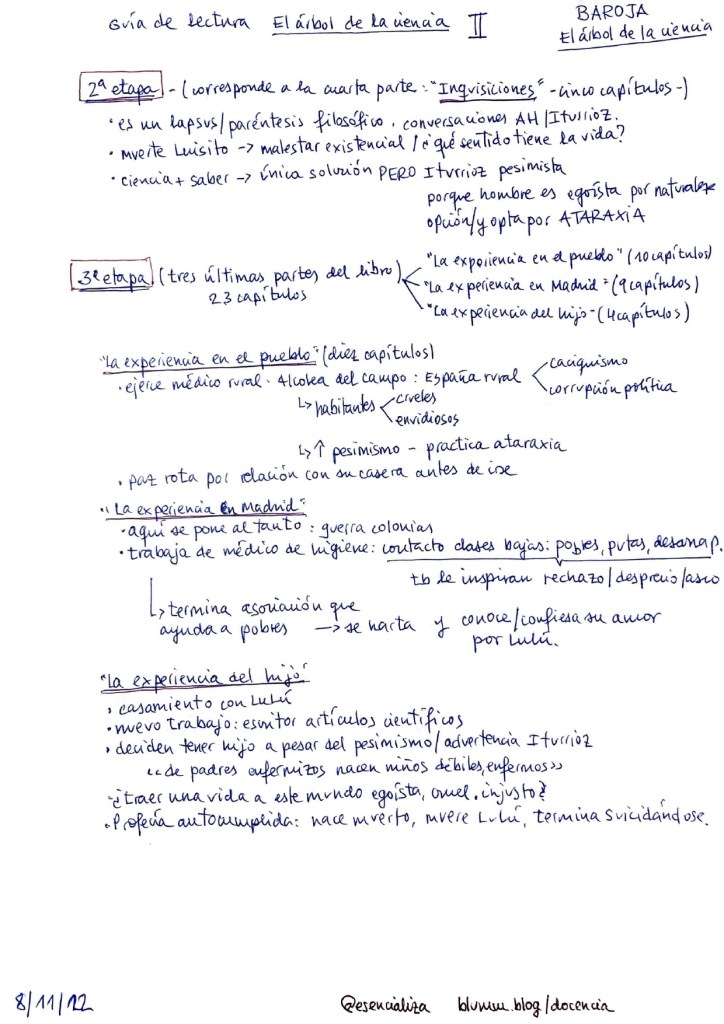 Guía de lectura El árbol de la ciencia II
BAROJA
El árbol de la ciencia
2ª etapa - (corresponde a la cuarta parte: "Inquisiciones" - cinco capítulos -)
· es un lapsus/paréntesis filosófico. conversaciones AH/Iturrioz.
· muerte Luisito -> malestar existencial / ¿qué sentido tiene la vida?
· ciencia + saber -> única solución PERO Iturrioz pesimista
porque hombre es egoísta por naturaleza
opción/y opta por ATARAXIA
3ª etapa (tres últimas partes del libro)
23 capítulos
"La experiencia en el pueblo" (10 capítulos)
"La experiencia en Madrid" (9 capítulos)
"La experiencia del hijo" - (4 capítulos)
"La experiencia en el pueblo" (diez capítulos)
· ejerce médico rural. Alcolea del campo: España rural
caciquismo
corrupción política
↳ habitantes
crueles
envidiosos
↳ ↑ pesimismo - practica ataraxia
· paz rota por relación con su casera antes de irse
"La experiencia en Madrid"
· aquí se pone al tanto: guerra colonias
· trabaja de médico de higiene: contacto clases bajas: pobres, putas, desarrap.
tb le inspiran rechazo/desprecio/asco
↳ termina asociación que
ayuda a pobres -> se harta y conoce/confiesa su amor
por Lulú.
"La experiencia del hijo"
· casamiento con Lulú
· nuevo trabajo: escritor artículos científicos
· deciden tener hijo a pesar del pesimismo/advertencia Iturrioz
<<de padres enfermizos nacen niños débiles, enfermos>>
¿traer una vida a este mundo egoísta, cruel, injusto?
· Profecía autocumplida: nace muerto, muere Lulú, termina suicidándose.
8/11/22
@esencializa
blumm.blog/docencia